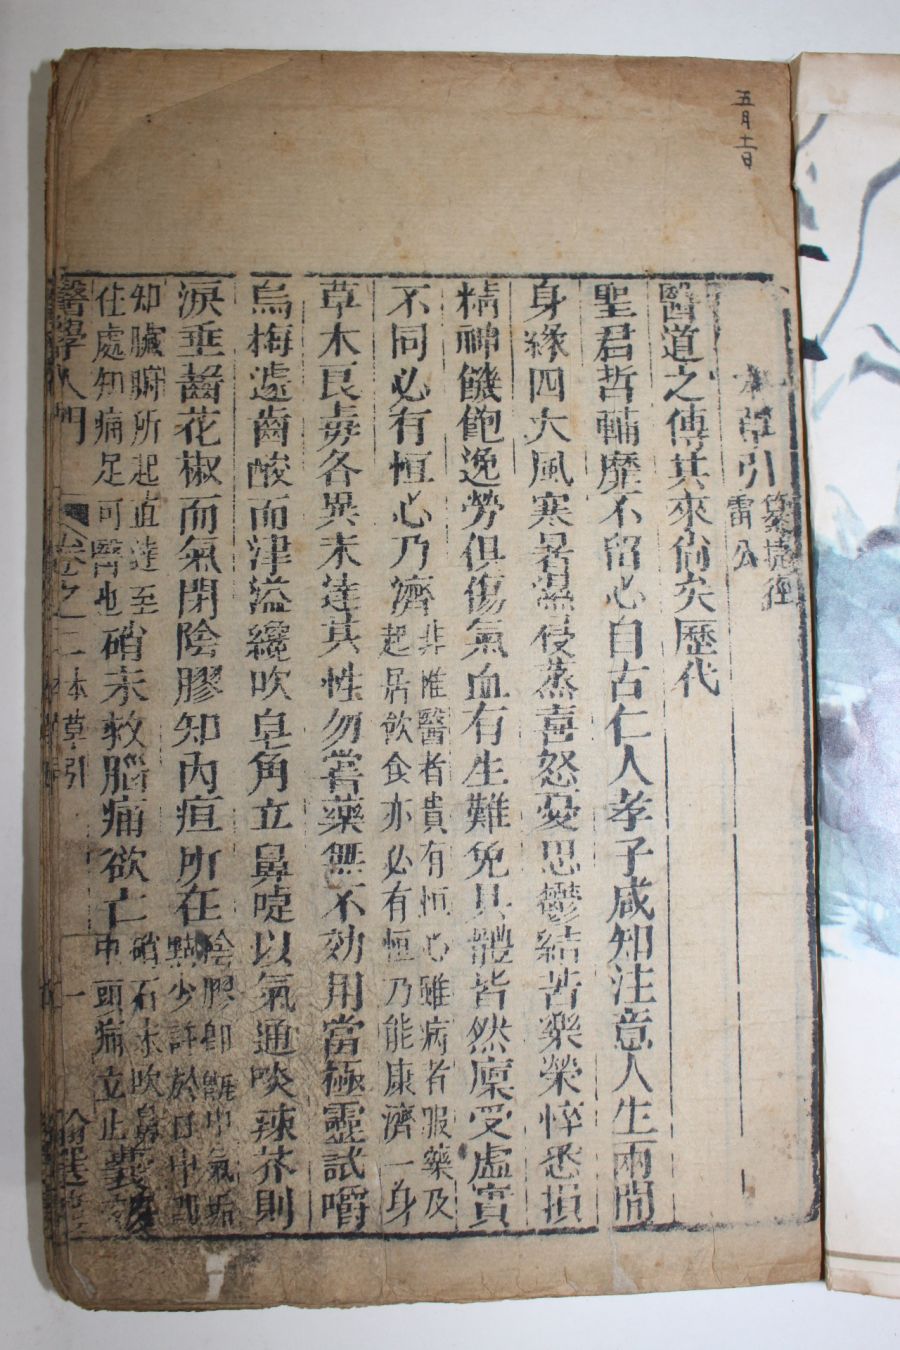 五月十一日
本草引
纂捷徑
雷公
醫道之傳其來尙矣歷代
聖君哲輔靡不留心自古仁人孝子咸知注意人生兩間
身緣四大風寒暑濕侵蒸喜怒憂思鬱結苦樂榮悴悉損
精神饑飽逸勞俱傷氣血有生難免具體皆然廩受虛實
不同必有恒心乃濟
非惟醫者貴有恒心雖病者服藥及
起居飲食亦必有恒乃能康濟一身
草木良毒各異未達其性勿嘗藥無不効用當極靈試嚼
烏梅遽齒酸而津溢纔吹皂角立鼻嚏以氣通啖辣芥則
淚垂齧花椒而氣閉陰膠知內疸所在
陰膠卽甑中氣垢
點少許於口中卽
知臟腑所起直達至
住處知痛足可醫也
硝末救腦痛欲亡
硝石末吹鼻
中頭痛立止
醫學入門
卷之二
本草引
一